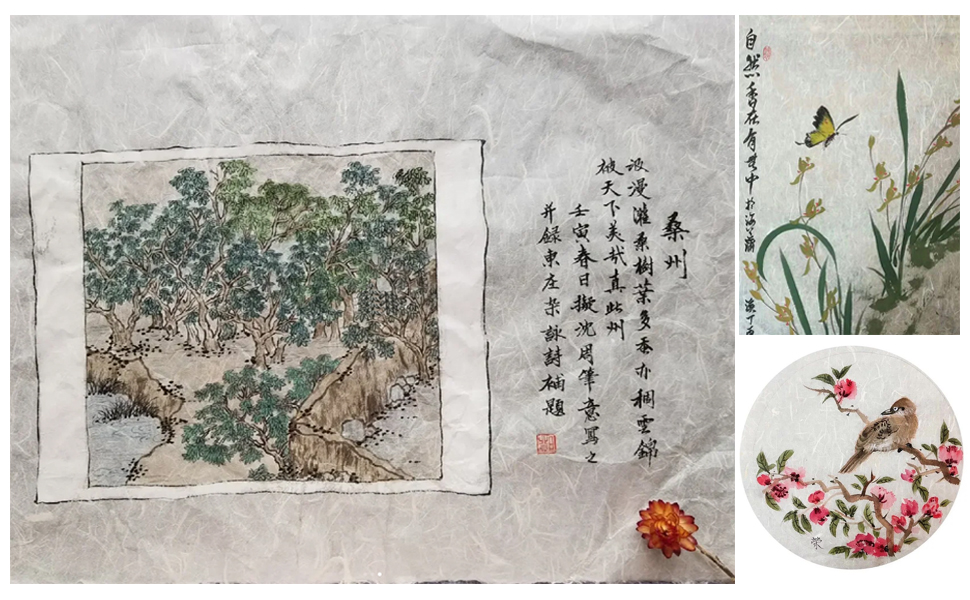 桑州
浪漫滩桑樹葉多蚕亦稠雲錦
被天下美哉真此州
壬寅春日擬沈周筆意寫之
并録東庄杂詠詩補題
自然香在有無中
榮